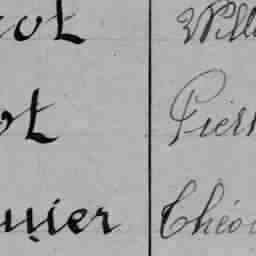 ot Will
ot Pier
unier Théo